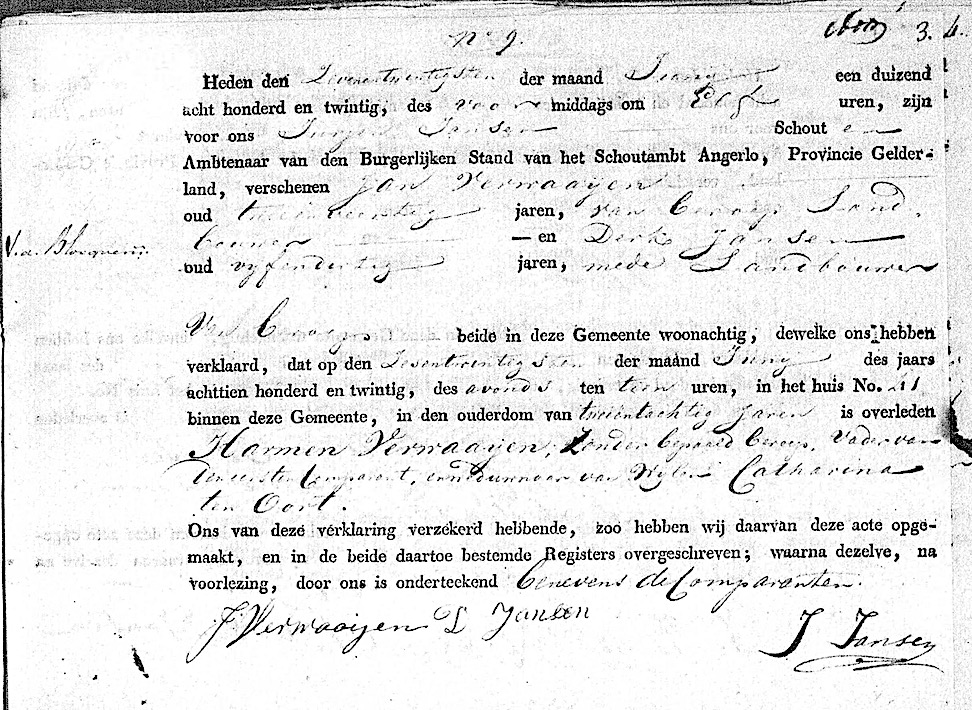 No 9.
3. 4.
Heden den Zevenentwintigsten der maand Juny een duizend
acht honderd en twintig, des voor middags om Elf uren, zijn
voor ons Jurjen Jansen Schout en
Ambtenaar van den Burgerlijken Stand van het Schoutambt Angerlo, Provincie Gelder-
land, verschenen Jan Verwaaijen
oud jaren, van beroep Land
bouwer — en Derk Jansen
oud vyfendertig jaren, mede Landbouwer
Van beroep beide in deze Gemeente woonachtig, dewelke ons hebben
verklaard, dat op den Zesentwintigsten der maand Juny des jaars
achttien honderd en twintig, des avonds ten tien uren, in het huis No. 21
binnen deze Gemeente, in den ouderdom van tweeentachtig Jaren is overleden
Harmen Verwaaijen, zonder bepaald beroep, Vader van
den eersten Comparant, en weduwnaar van Wylen Catharina
ten Oort.
Ons van deze verklaring verzekerd hebbende, zoo hebben wij daarvan deze acte opge-
maakt, en in de beide daartoe bestemde Registers overgeschreven; waarna dezelve, na
voorlezing, door ons is onderteekend benevens de Comparanten.
J. Verwaaijen D Jansen
J Jansen